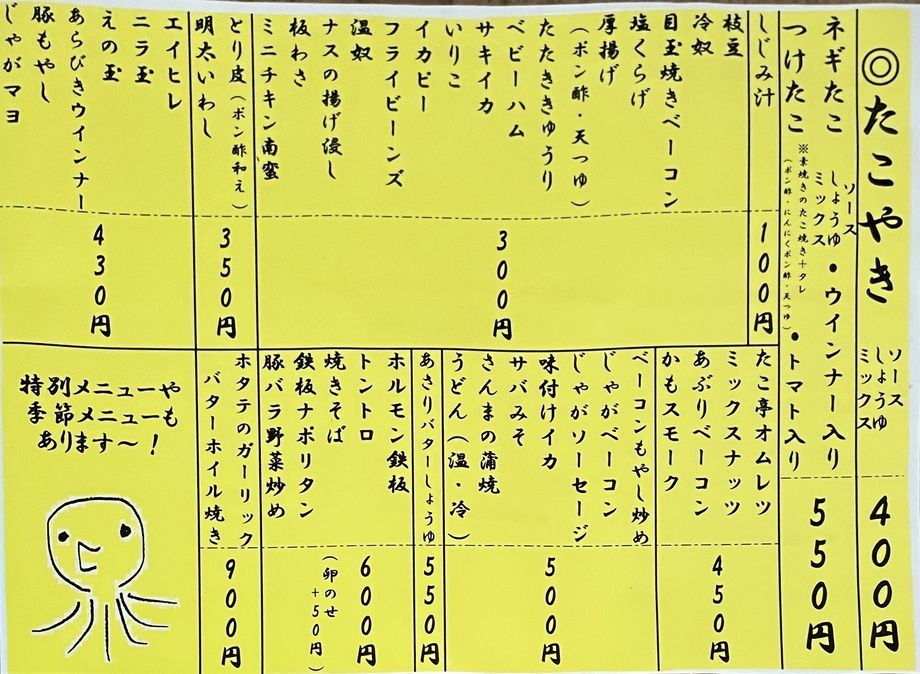 ◎たこやき
ソース
しょうゆ
ミックス
400円
ネギたこ
ソース
しょうゆ
ミックス
・ウインナー入り
つけたこ
※素焼きのたこ焼き＋タレ
（ポン酢・にんにくポン酢・天つゆ）
・トマト入り
550円
しじみ汁
100円
枝豆
冷奴
目玉焼きベーコン
塩くらげ
厚揚げ
（ポン酢・天つゆ）
たたききゅうり
ベビーハム
サキイカ
いりこ
イカピー
フライビーンズ
温奴
ナスの揚げ浸し
板わさ
ミニチキン南蛮
300円
とり皮（ポン酢和え）
明太いわし
350円
エイヒレ
ニラ玉
えの玉
あらびきウインナー
豚もやし
じゃがマヨ
430円
たこ亭オムレツ
ミックスナッツ
あぶりベーコン
かもスモーク
450円
ベーコンもやし炒め
じゃがベーコン
じゃがソーセージ
味付けイカ
サバみそ
さんまの蒲焼
うどん（温・冷）
500円
あさりバターしょうゆ
550円
ホルモン鉄板
トントロ
焼きそば
鉄板ナポリタン
豚バラ野菜炒め
600円
（卵のせ
+50円）
ホタテのガーリック
バターホイル焼き
900円
特別メニューや
季節メニューも
あります〜！